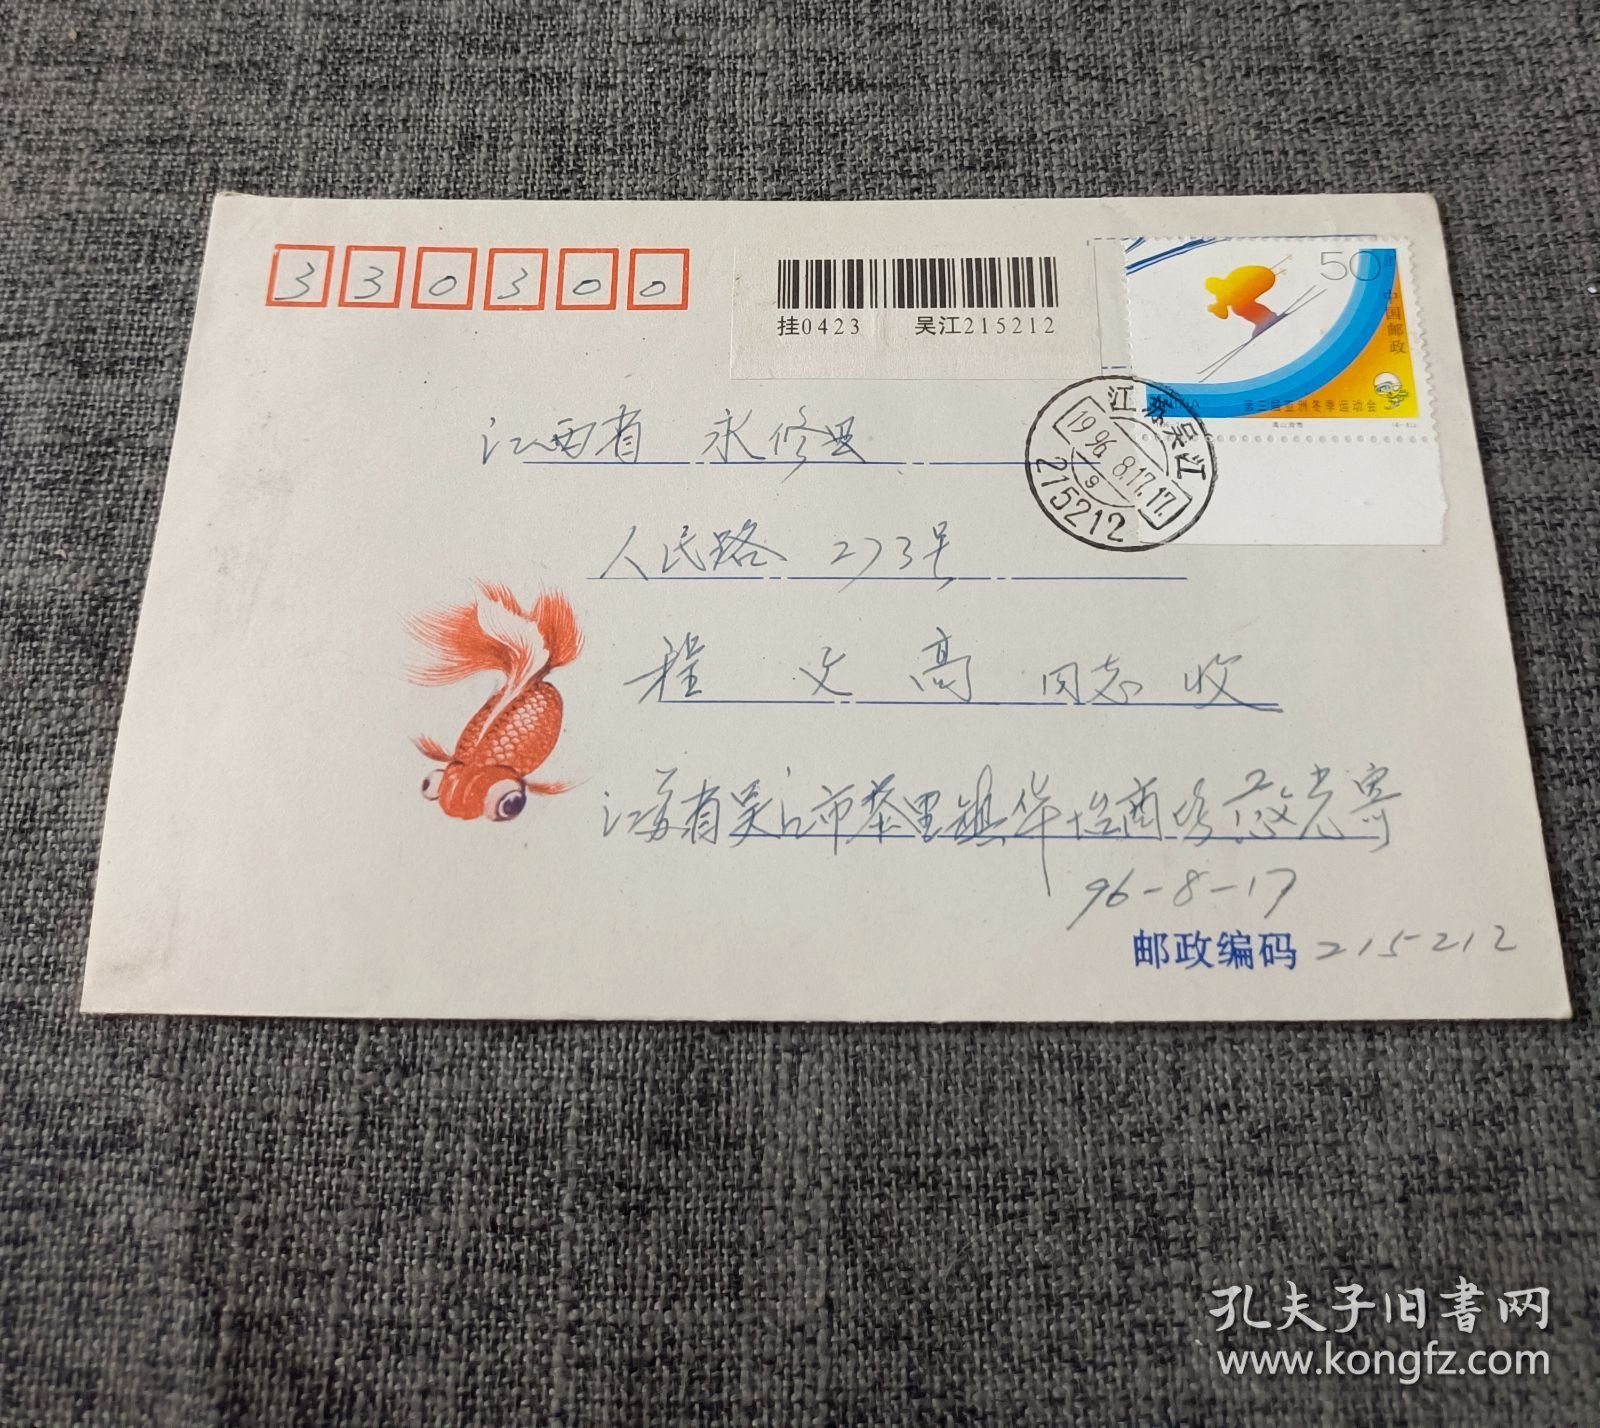 330300
挂0423 吴江215212
50分
中国邮政
CHINA 第三届亚洲冬季运动会
高山滑雪
江苏吴江
1996.8.17.17.
9
215212
江西省 永修县
人民路 273号
程文高 同志收
江苏省吴江市莘塔镇 寄
96-8-17
邮政编码 215212
孔夫子旧書网
www.kongfz.com